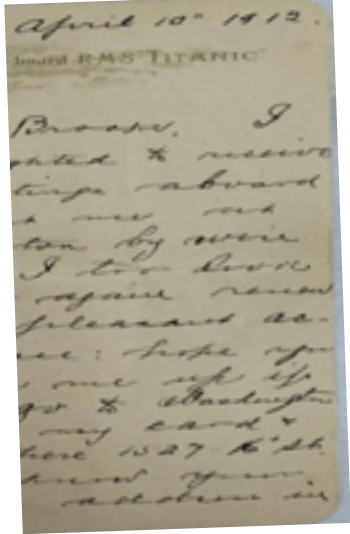 April 10th 1912.
board R.M.S "TITANIC"
Brooke, I
ghted to receive
tings aboard
me at
ton by wire
I too
again renew
pleasant ac-
: hope you
me up if
go to Washington
my card &
here 1527 16" St.
know your
address in